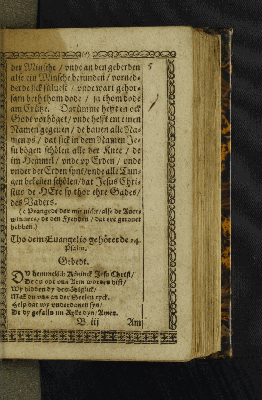 der Minsche / vnde an den geberden
alse ein Minsche befunden / vorned-
derde sick sülvest / vnde wart gehor-
sam beth thom dode / ja thom dode
am Crütze. Darümme hefft en ock
Godt vorhöget / vnde hefft em einen
Namen gegeuen / de bauen alle Na-
men ys / dat sick in dem Namen Je-
su bögen schölen alle der Knee / de
im Hemmel / vnde vp Erden / vnde
vnder der Erden synt / vnde alle Tun-
gen bekennen schölen / dat Jesus Chri-
stus de HEre sy thor ehre Gades /
des Vaders.
hebben.)
Tho dem Euangelio gehöret de 24.
Psalm.
Gebedt.
DV hemmelisch Köninck Jesu Christ /
De du vor vns Arm worden bist /
Wy bidden dy
Mack vns an der Seelen ryck.
Help dat wy vnderdanen syn /
De dy gefalln im Ryke dyn / Amen.
B iij Am